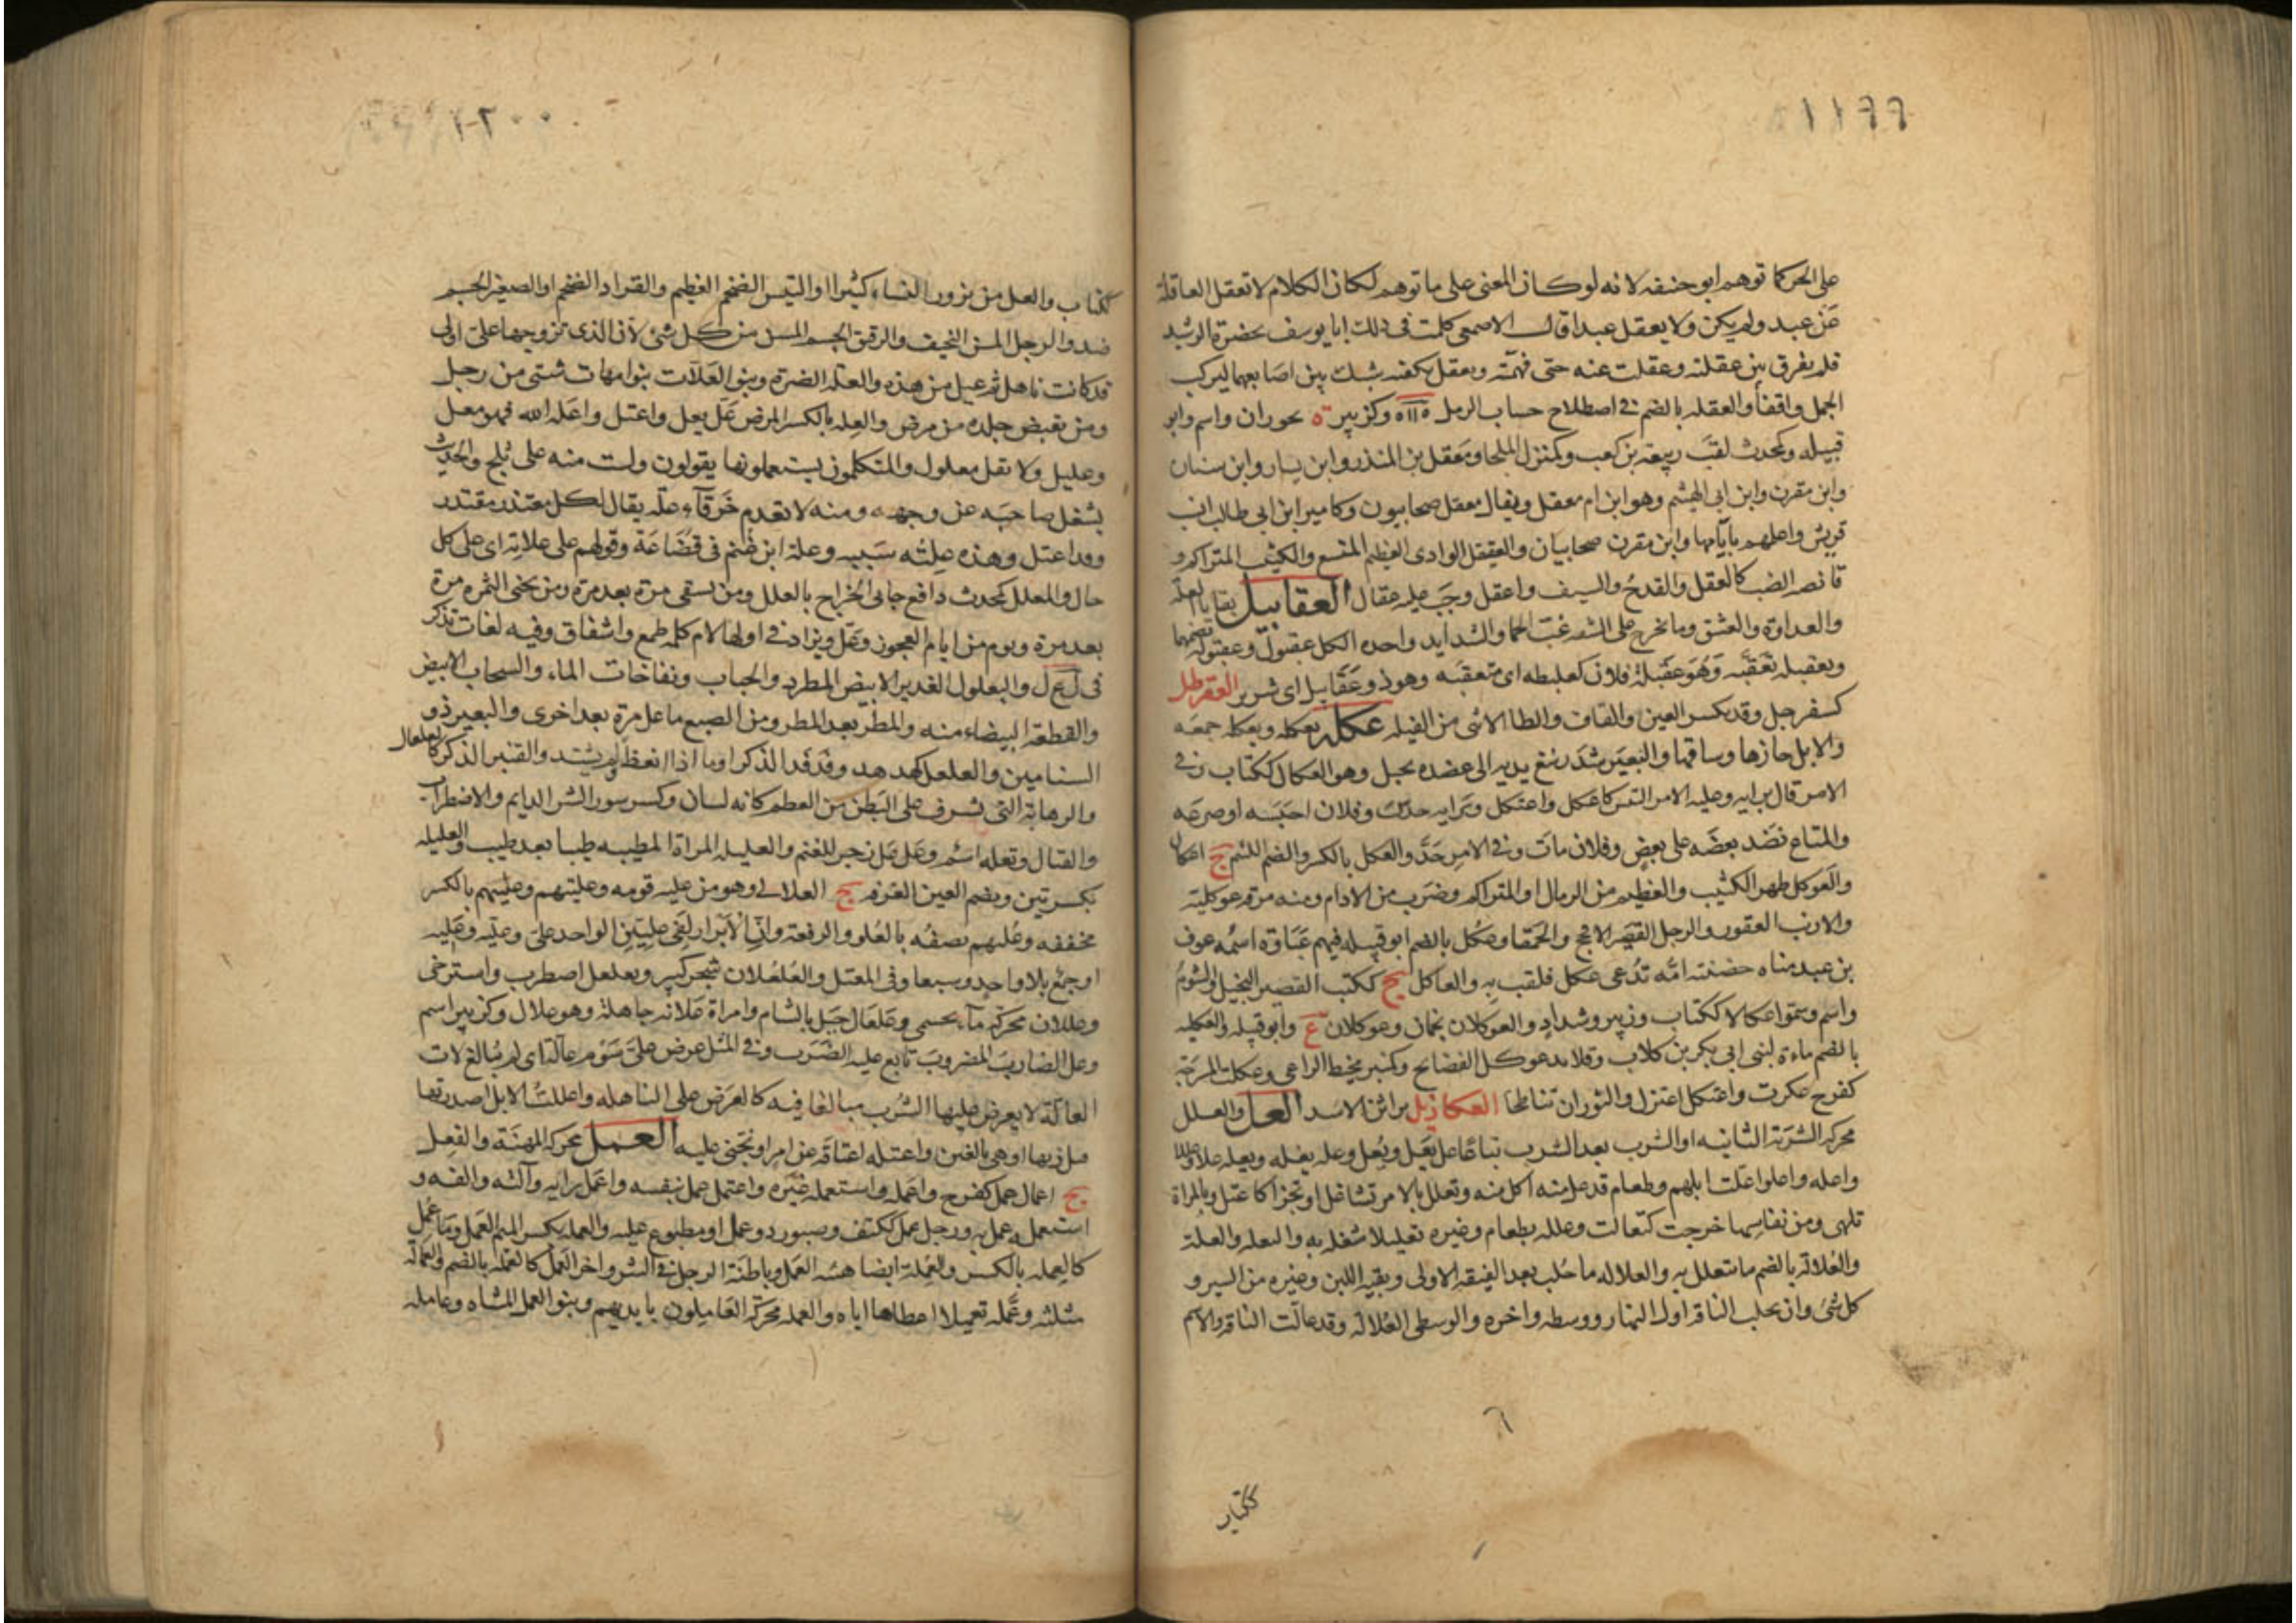 ١١٩٩
على الحر كما توهم ابو حنيفه لانه لو كان المعنى على ما توهم لكان الكلام لا تعقل العاقلة
عن عبد ولم يكن ولا يعقل عبدا قال الاصمعى كلمت فى ذلك ابا يوسف بحضرة الرشيد
فلم يفرق بين عقلته وعقلت عنه حتى فهمته وعقل بكفيه شبك بين اصابعهما ليركب
الجمل واقفا والعقله بالضم فى اصطلاح حساب الرمل وكزبير ة بحوران واسم وابو
قبيله وكمحدث لقب ربيعة بن كعب وكمنزل الملجا ومعقل بن المنذر وابن يسار وابن سنان
وابن مقرن وابن ابى الهيثم وهو ابن ام معقل ويقال معقل صحابيون وكامير ابن ابى طالب انسب
قريش واعلمهم بايامها وابن مقرن صحابيان والعقنقل الوادى العظيم المتسع والكثيب المتراكم و
قانصه الضب كالعقل والقدح والسيف واعقل وجب عليه عقال العقابيل بقايا العلة
والعداوة والعشق وما يخرج على الشفه غب الحما والشدايد واحده الكل عقبول وعقبوله بضمهما
وتعقبله تعقبه وهو عقبلة فلان كعلبطه اى متعقبه وهو ذو عقابيل اى شرير العقرطل
كسفرجل وقد بكسر العين والقاف والطا الانثى من الفيله عكله يعكله ويعكله جمعه
والابل حازها وساقها والبعير شد رسغ يديه الى عضده بحبل وهو العكال ككتاب وفى
الامر قال برايه وعليه الامر التبس كاعكل واعتكل وبرايه حدس وفلان احبسه او صرعه
والمتاع نضد بعضه على بعض وفلان مات وفى الامر جد والعكل بالكسر والضم اللئيم ج اعكال
والعوكل ظهر الكثيب والعظيم من الرمال او المتراكم وضرب من الادام ومنه مرقه عوكلية
والارنب العقور والرجل القصير الافحج والحمقا وعكل بالضم ابو قبيله فيهم غباوة اسمه عوف
بن عبد مناه حضنته امه تدعى عكل فلقب به والعاكل ج ككتب القصير البخيل المشوم
واسم وسموا عكالا ككتاب وزبير وشداد والعوكلان نجمان وعوكلان ع وابو قبيله والعكليه
بالضم ماءة لبنى ابى بكر بن كلاب وقلايد عوكل الفضايح وكمنبر مخيط الراعى وعكلت المسرجة
كفرح عكرت واعتكل اعتزل والثوران تناطحا العكازيل براثن الاسد العل والعلل
محركه الشربة الثانيه او الشرب بعد الشرب تباعا عل يعل ويعل وعله يعله ويعله علا وعللا
واعله واعلوا علت ابلهم وطعام قد عل منه اكل منه وتعلل بالامر تشاغل او تجزا كاعتل وبالمراة
تلهى ومن نفاسها خرجت كتعالت وعلله بطعام وغيره تعليلا شغله به والتعله والعلة
والعلالة بالضم ما يتعلل به والعلاله ما حلب بعد الفيقه الاولى وبقيه اللبن وغيره من السير و
كل شئ وان يحلب الناقه اول النهار ووسطه واخره والوسطى العلاله وقد عالت الناقه والاسم
ككتاب
١٢٠٠
ككتاب والعل من يزور النساء كثيرا والتيس الضخم العظيم والقراد الضخم او الصغير الجسم
ضد والرجل المسن النحيف والرقيق الجسم المسن من كل شئ لان الذى تزوجها على اولى
قد كانت ناهل ثم عل من هذه والعله الضرة وبنو العلات بنو امهات شتى من رجل
ومن تقبض جلده من مرض والعله بالكسر المرض عل يعل واعتل واعله الله فهو معل
وعليل ولا تقل معلول والمتكلمون يستعملونها يقولون ولست منه على ثلج والحدث
يشغل صاحبه عن وجهه ومنه لا تعدم خرقاء علة يقال لكل معتذر مقتدر
وقد اعتل وهذه علته سببه وعلة ابن غنم فى قضاعة وقولهم على علاته اى على كل
حال والمعلل كمحدث دافع جابى الخراج بالعلل ومن يسقى مرة بعد مرة ومن يجنى الثمره مرة
بعد مرة ويوم من ايام العجوز وعل ويزاد فى اولها لام كلمه طمع واشفاق وفيه لغات تذكر
فى ل ع ل واليعلول الغدير الابيض المطرد والحباب ونفاخات الماء والسحاب الابيض
والقطعة البيضاء منه والمطر بعد المطر ومن الصبغ ما عل مرة بعد اخرى والبعير ذو
السنامين والعلعل كهدهد وفدفد الذكر او ما اذا انعظ لم يشتد والقنبر الذكر كالعلعال
والرهابة التى تشرف على البطن من العظم كانه لسان وكسرسور الشر الدايم والاضطراب
والقتال وتعله اسم وعل عل زجر للغنم والعليله المراة المطيبه طيبا بعد طيب والعليله
بكسرتين وبضم العين الغرفه ج العلالى وهو من عليه قومه وعليتهم وعليهم بالكسر
مخففه وعليهم يصفه بالعلو والرفعة وان الابرار لفى عليين الواحد على وعليه وعليه
او جمع بلا واحد وسبعا وفى المعتل والعلعلان شجر كبير وتعلعل اضطرب واسترخى
وعللان محركه ماء بحسمى وعلعال جبل بالشام وامراة علانه جاهلة وهو علال وكزبير اسم
وعل الضارب المضروب تابع عليه الضرب وفى المثل عرض على سوم عالة اى لم يبالغ لان
العالة لا يعرض عليها الشرب مبالغا فيه كالعرض على الناهله واعللت الابل اصدرتها
قبل ريها او هى بالغين واعتله اعتاقه عن امر او تجنى عليه العمل محركه المهنة والفعل
ج اعمال عمل كفرح واعمله واستعمله غيره واعتمل عمل بنفسه واعمل رايه والته والفه و
استعمله عمل به ورجل عمل ككتف وصبور ذو عمل او مطبوع عليه والعمله بكسر الميم العمل وما عمل
كالعمله بالكسر والعملة ايضا هيئه العمل وباطنة الرجل فى الشر واجر العمل كالعمله بالضم والعمالة
مثلثه وعمله تعميلا اعطاها اياه والعمله محركه العاملون بايديهم وبنو العمل المشاه وعامله